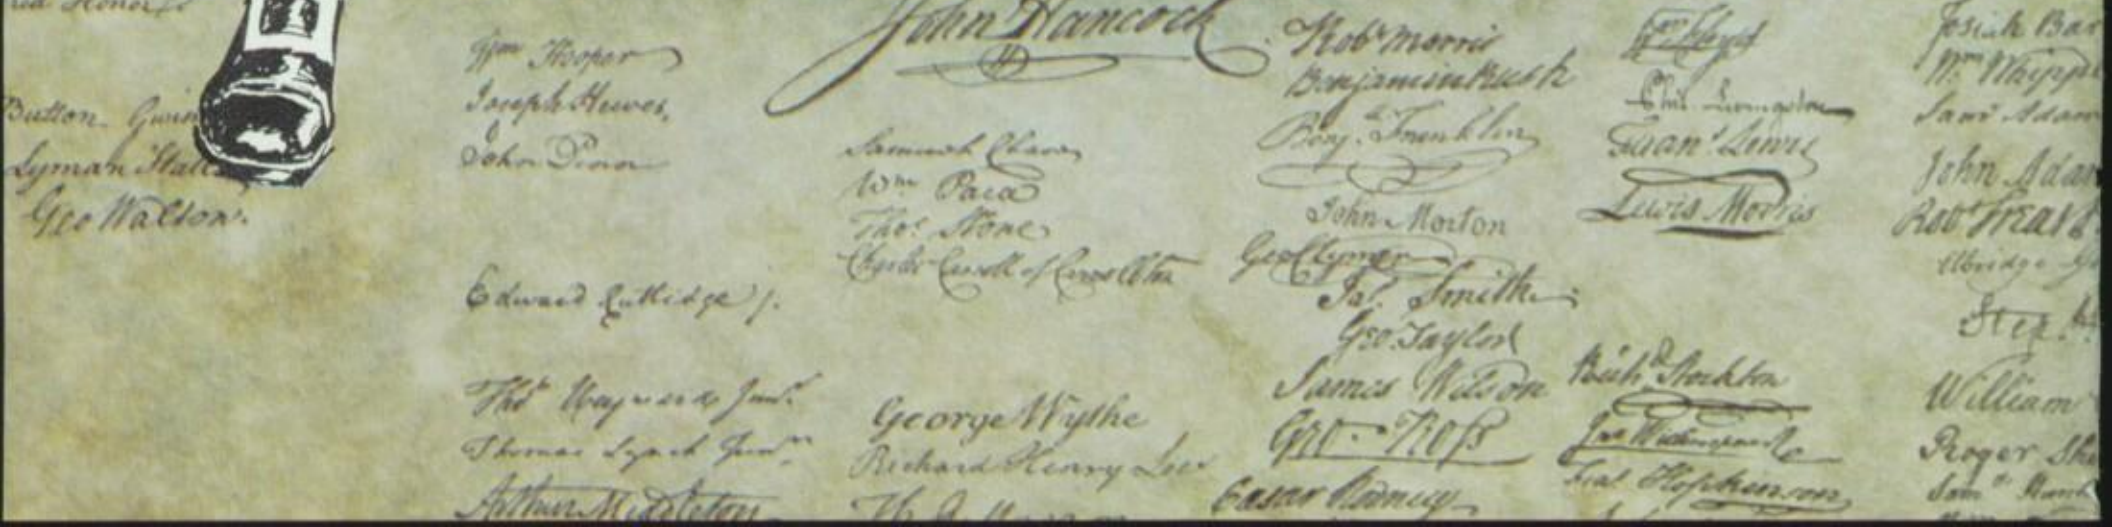 Honor
Button
Lyman
Geo Walton.
Wm Hooper
Joseph Hewes,
John Penn
Edward Rutledge j.
Thos Heyward Junr.
Thomas Lynch Junr.
Arthur Middleton
John Hancock
Samuel Chase
Wm Paca
Thos Stone
Charles Carroll of Carrollton
George Wythe
Richard Henry Lee
Robt Morris
Benjamin Rush
Benj. Franklin
John Morton
Geo Clymer
Jas. Smith
Geo. Taylor
James Wilson
Geo. Ross
Caesar Rodney
Wm Floyd
Phil. Livingston
Frans. Lewis
Lewis Morris
Richd. Stockton
Jno Witherspoon
Fras. Hopkinson
Josiah Bar
Wm Whipple
Saml Adam
John Adam
Robt Treat P
Elbridge Ge
Step. H
William
Roger She
Saml Hunt